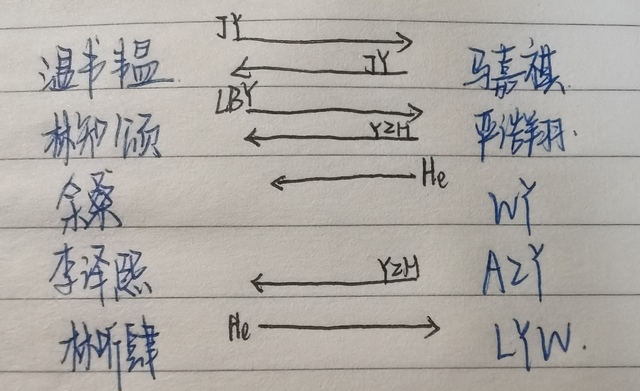 温书韫 JY JY 马嘉祺
林知颂 LBY YZH 严浩翔
余桑 He WY
李泽熙 YZH AZY
林听肆 He LYW.